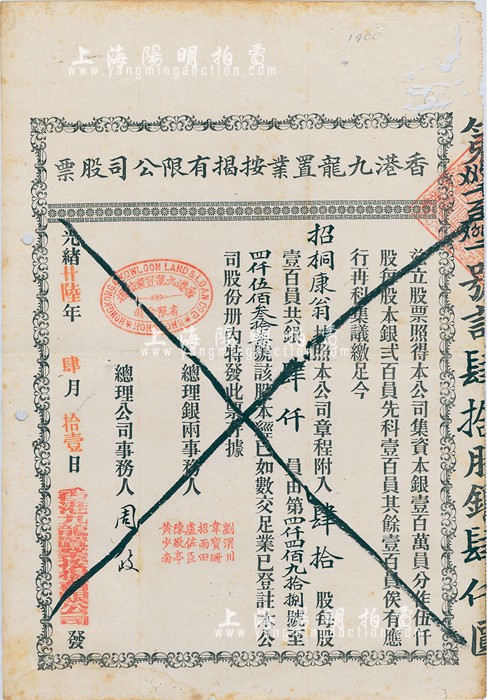 上海陽明拍賣
www.yangmingauction.com
1900
香港九龍置業按揭有限公司股票
發立股票照得本公司集資本銀壹百萬員分作伍仟
股每股本銀弍百員先科壹百員其餘壹百員俟有應
行再科集議繳足今
招桐康翁按照本公司章程附入肆拾股每股
壹百員共銀肆仟員由第四仟四佰九拾捌號至
四仟伍佰叁拾號該股本經已如數交足業已登註本公
司股份册內特發此票為據
總理銀兩事務人
劉渭川
韋寶珊
招雨田
盧佐臣
陳敬亭
黃少南
總理公司事務人 周政
光緒廿陸年 肆月 拾壹日
香港九龍置業按揭有限公司 發
號言肆拾股銀肆仟圓
HONGKONG & KOWLOON LAND & LOAN CO LD
香港九龍置業按揭有限公司
上海陽明拍賣
www.yangmingauction.com
上海陽明拍賣
www.yangmingauction.com